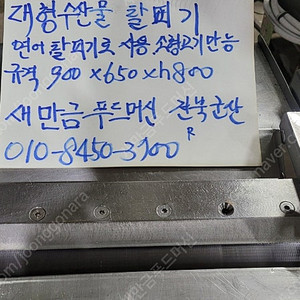 대형수산물 탈피기
연어탈피기로 사용 소형고기 만능
규격 900×650×h800
새만금푸드머신 전북군산
R
010-8450-3700